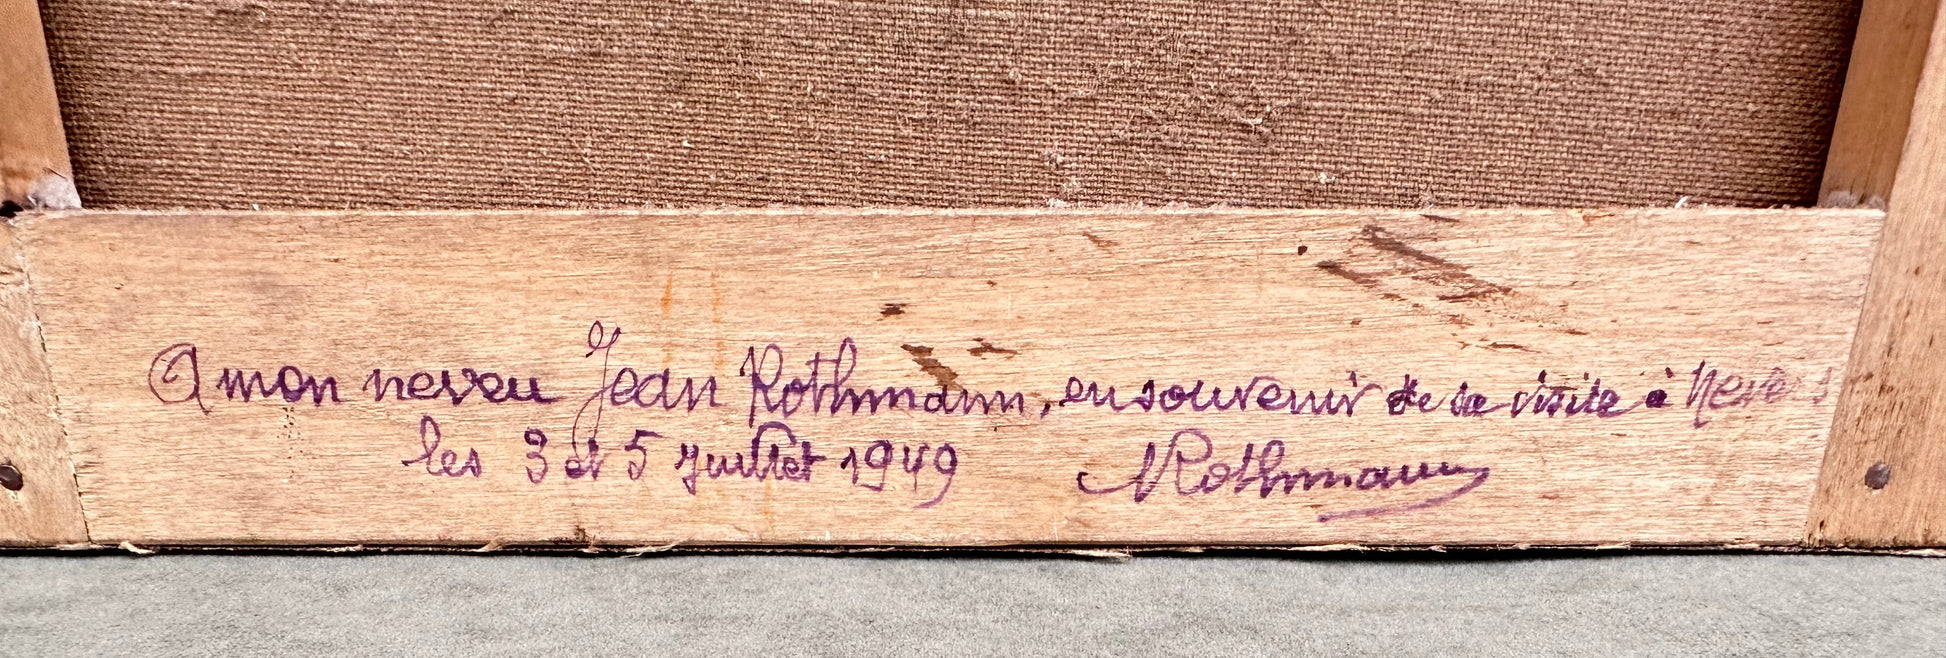 A mon neveu Jean Rothmann, en souvenir de sa visite à Nevers
les 3 et 5 Juillet 1949 MRothmann